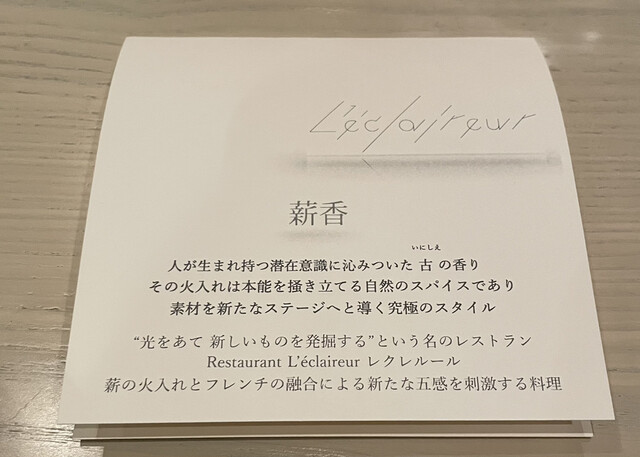 L'éclaireur
薪香
いにしえ
人が生まれ持つ潜在意識に沁みついた 古 の香り
その火入れは本能を掻き立てる自然のスパイスであり
素材を新たなステージへと導く究極のスタイル
“光をあて 新しいものを発掘する”という名のレストラン
Restaurant L'éclaireur レクレルール
薪の火入れとフレンチの融合による新たな五感を刺激する料理